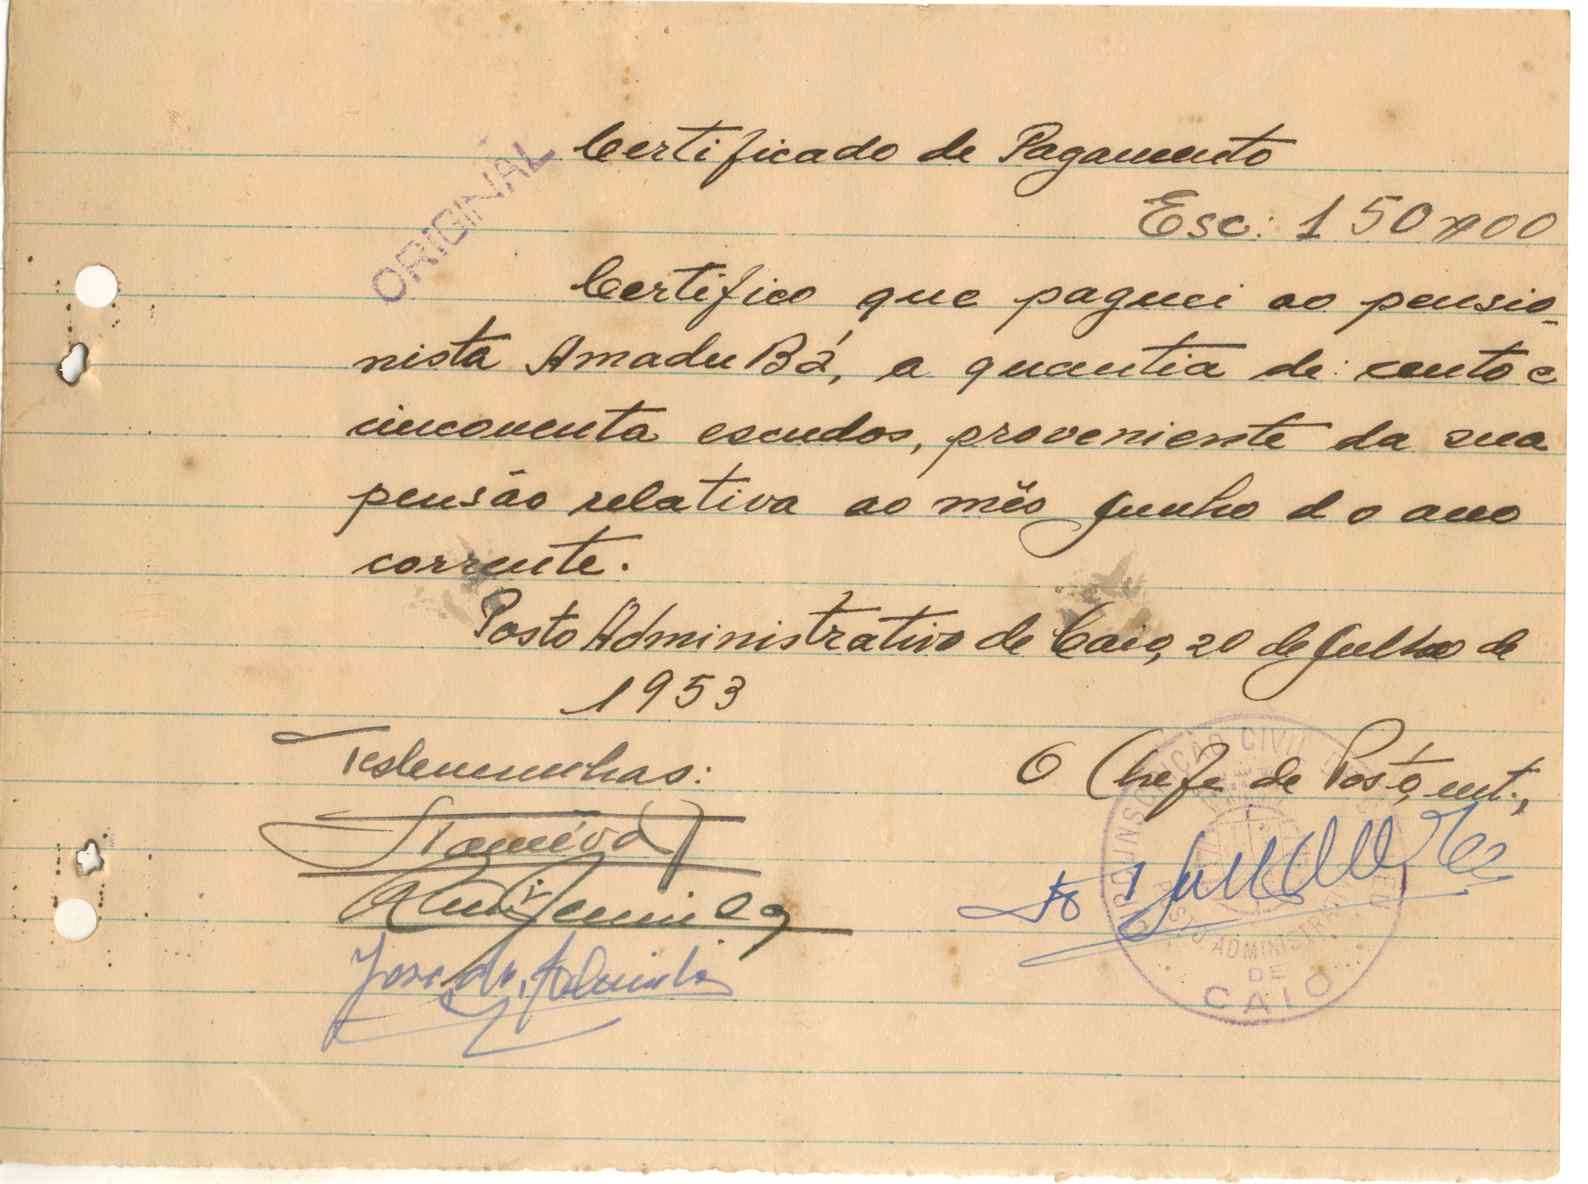 ORIGINAL
Certificado de Pagamento
Esc: 150$00
Certifico que paguei ao pensio-
nista Amadu Bá, a quantia de: cento e
cincoenta escudos, proveniente da sua
pensão relativa ao mês Junho do ano
corrente.
Posto Administrativo de Caio, 20 de Julho de
1953
Testemunhas:
O Chefe de Posto, int.,
CIVIL
POSTO ADMINISTRATIVO
DE
CAIO